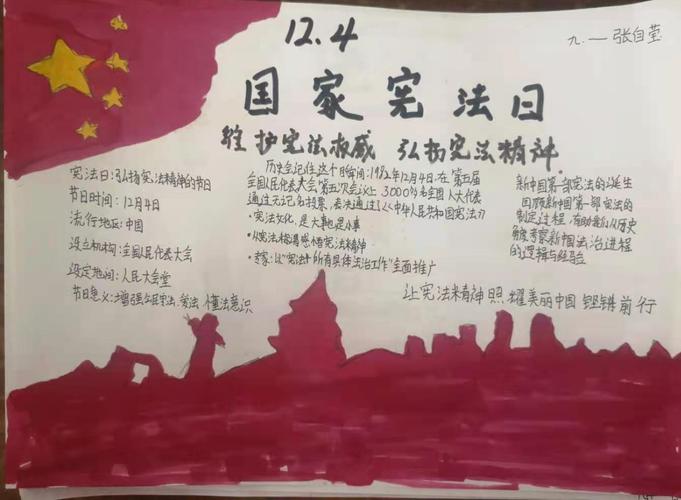 12.4
九.一 张自莹
国家宪法日
维护宪法权威 弘扬宪法精神.
宪法日:弘扬宪法精神的节日
节日时间:12月4日
流行地区:中国
设立机构:全国人民代表大会
设定地间:人民大会堂
节日意义:增强公民学法、爱法、懂法意识
历史会记住这个日时间:1982年12月4日.在第五届
全国人民代表大会第五次会议上 3000多名全国人大代表
通过无记名投票,表决通过了《中华人民共和国宪法》
·宪法文化,是大事也是小事
·从宪法标语感悟宪法精神
·专家:以"宪法+所有具体法治工作"全面推广
新中国第一部宪法的诞生
回顾新中国第一部宪法的
制定过程,有助我们从历史
角度考察新中国法治进程
的逻辑与经验
让宪法精神照耀美丽中国 铿锵前行